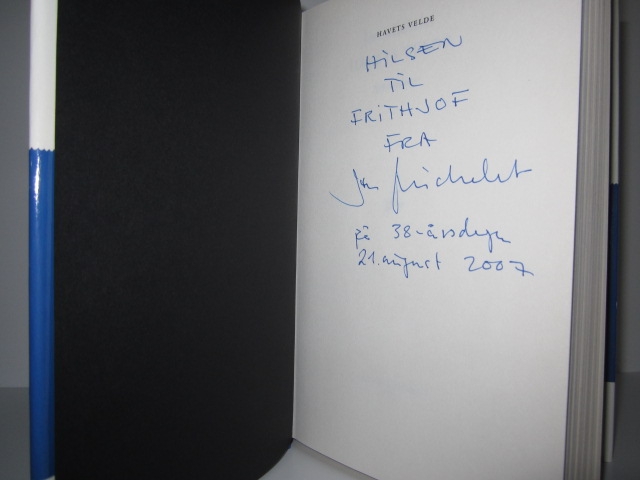 HAVETS VELDE
HILSEN
TIL
FRITHJOF
FRA
Jon Michelet
på 38-årsdagen
21. august 2007